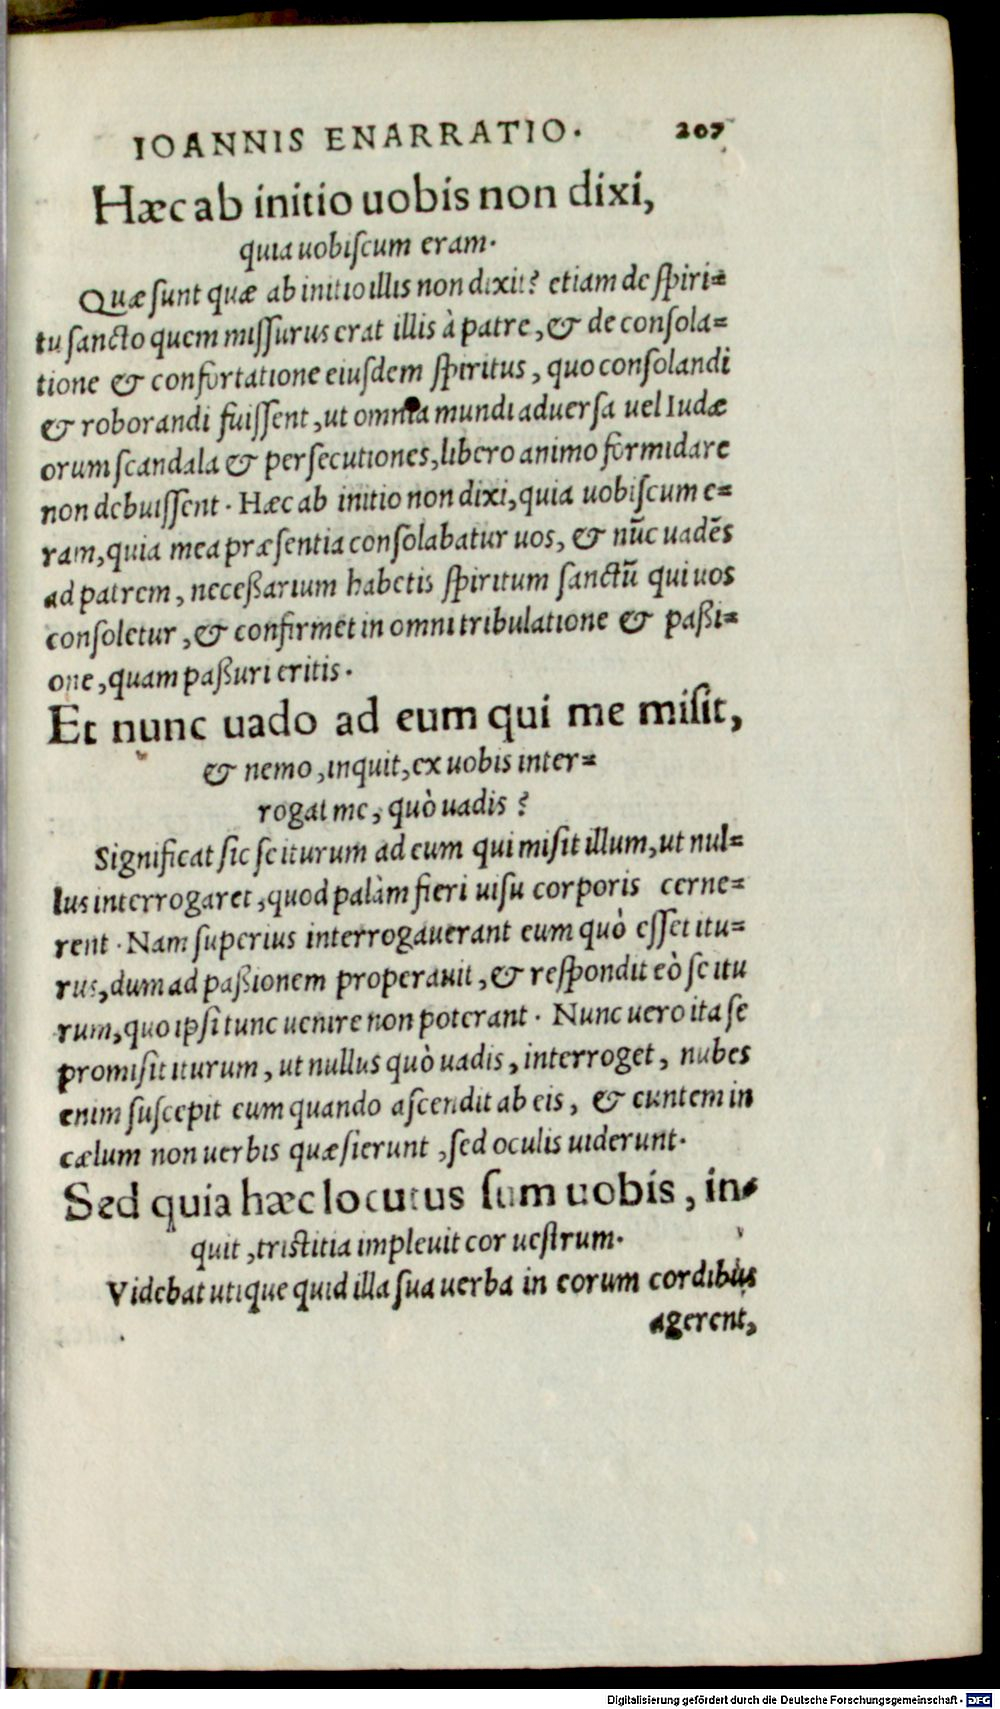 IOANNIS ENARRATIO. 207
Hæc ab initio uobis non dixi,
quia uobiſcum eram.
Quæ ſunt quæ ab initio illis non dixit? etiam de ſpiri=
tu ſancto quem miſſurus erat illis à patre, & de conſola=
tione & confortatione eiuſdem ſpiritus, quo conſolandi
& roborandi fuiſſent, ut omnia mundi aduerſa uel Iudæ
orum ſcandala & perſecutiones, libero animo formidare
non debuiſſent. Hæc ab initio non dixi, quia uobiſcum e=
ram, quia mea præſentia conſolabatur uos, & nūc uadēs
ad patrem, neceßarium habetis ſpiritum ſanctū qui uos
conſoletur, & confirmet in omni tribulatione & paßi=
one, quam paßuri eritis.
Et nunc uado ad eum qui me miſit,
& nemo, inquit, ex uobis inter=
rogat me, quò uadis?
Significat ſic ſe iturum ad eum qui miſit illum, ut nul=
lus interrogaret, quod palàm fieri uiſu corporis cerne=
rent. Nam ſuperius interrogauerant eum quò eſſet itu=
rus, dum ad paßionem properauit, & reſpondit eò ſe itu
rum, quo ipſi tunc uenire non poterant. Nunc uero ita ſe
promiſit iturum, ut nullus quò uadis, interroget, nubes
enim ſuſcepit eum quando aſcendit ab eis, & euntem in
cælum non uerbis quæſierunt, ſed oculis uiderunt.
Sed quia hæc locutus ſum uobis, in=
quit, triſtitia impleuit cor ueſtrum.
Videbat utique quid illa ſua uerba in eorum cordibus
agerent,
Digitalisierung gefördert durch die Deutsche Forschungsgemeinschaft - DFG